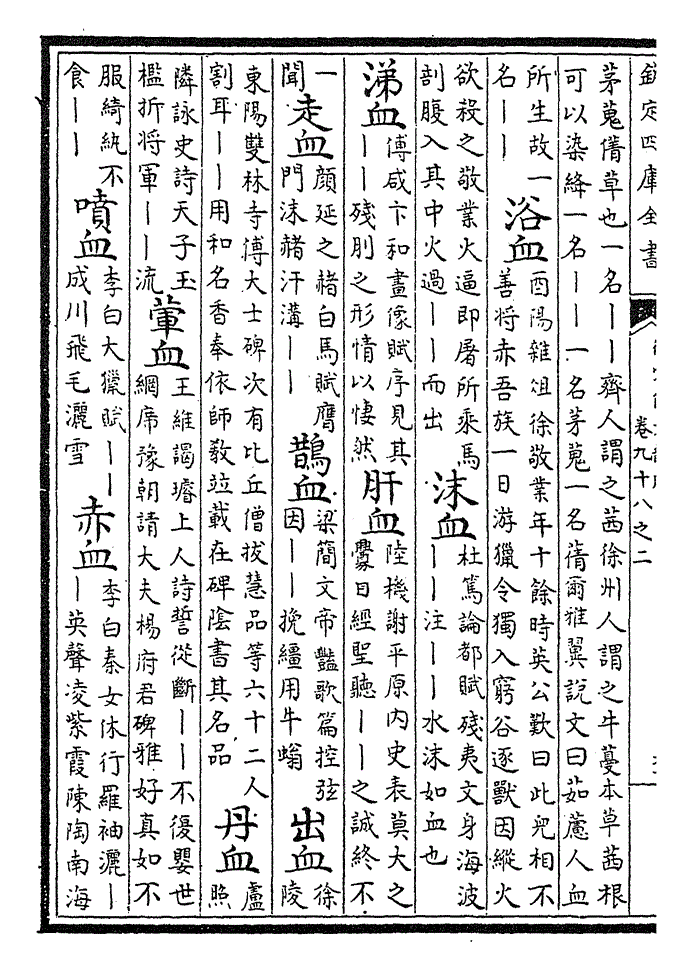 欽定四庫全書
卷九十八之二
茅蒐蒨草也一名——齊人謂之茜徐州人謂之牛蔓本草茜根
可以染絳一名——一名茅蒐一名蒨爾雅翼說文曰茹藘人血
所生故一
名——
浴血
酉陽雜俎徐敬業年十餘時英公歎曰此兒相不
善將赤吾族一日游獵令獨入窮谷逐獸因縱火
欲殺之敬業火逼即屠所乘馬
剖腹入其中火過——而出
沬血
杜篤論都賦殘夷文身海波
——注——水沫如血也
涕血
傅咸卞和畫像賦序見其
——殘刖之形情以悽然
肝血
陸機謝平原內史表莫大之
釁日經聖聽——之誠終不
一
聞
走血
顏延之赭白馬賦膺
門沫赭汗溝——
鵲血
梁簡文帝豔歌篇控弦
因——挽繮用牛螉
出血
徐
陵
東陽雙林寺傅大士碑次有比丘僧拔慧品等六十二人
割耳——用和名香奉依師教竝載在碑陰書其名品
丹血
盧
照
隣詠史詩天子玉
檻折將軍——流
葷血
王維謁璿上人詩誓從斷——不復嬰世
網席豫朝請大夫楊府君碑雅好真如不
服綺紈不
食——
噴血
李白大獵賦——
成川飛毛灑雪
赤血
李白秦女休行羅袖灑—
—英聲凌紫霞陳陶南海